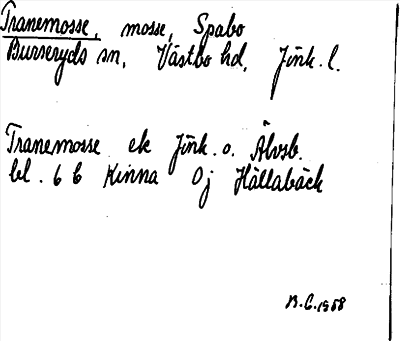 Tranemosse, mosse, Spabo
Burseryds sn, Västbo hd, Jönk. l.
Tranemosse ek Jönk. o. Älvsb.
bl. 6 b Kinna Oj Hällabäck
B.G. 1958